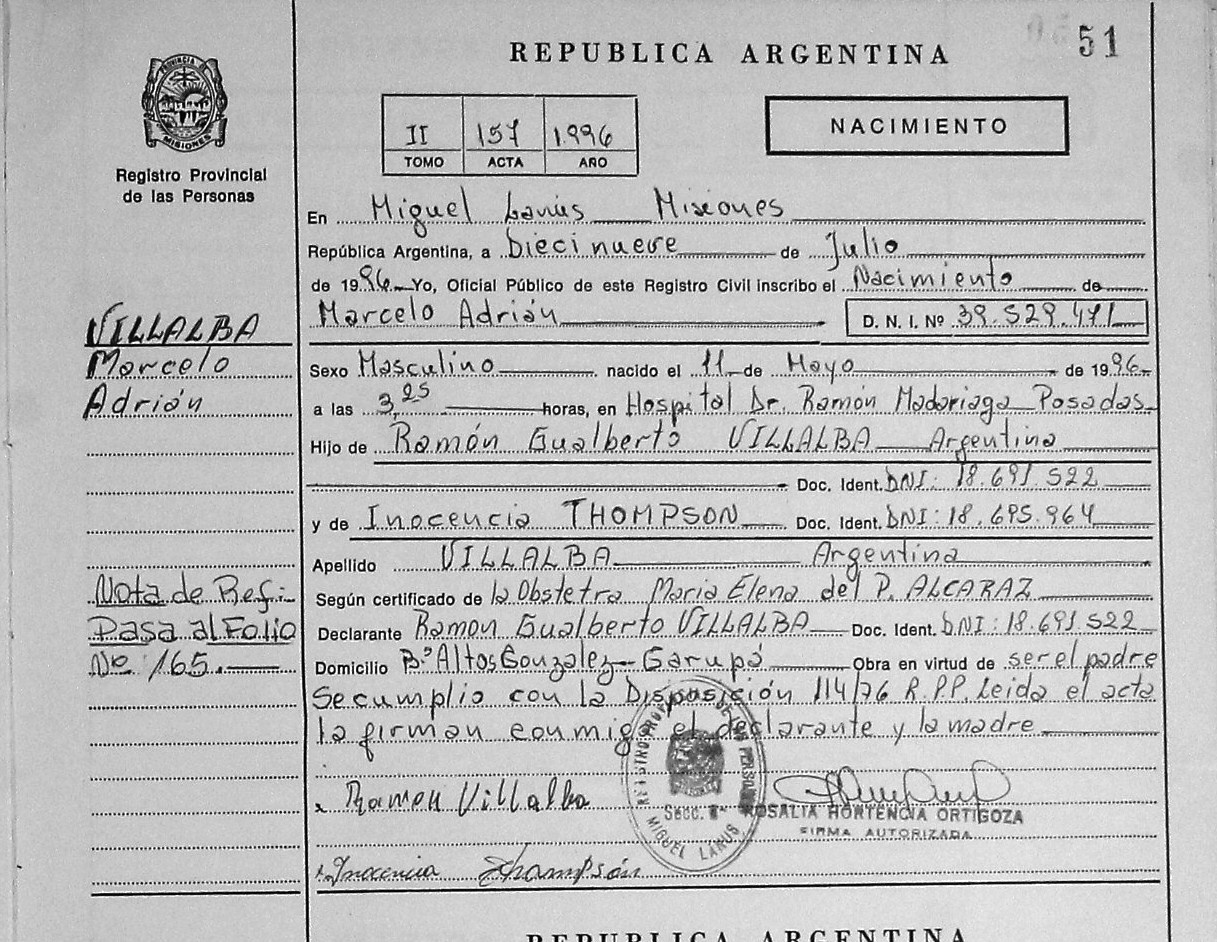 51
REPUBLICA ARGENTINA
PROVINCIA DE
MISIONES
Registro Provincial
de las Personas
II 157 1.996
TOMO ACTA AÑO
NACIMIENTO
En Miguel Lanús Misiones
República Argentina, a Diecinueve de Julio
de 1996 Yo, Oficial Público de este Registro Civil inscribo el Nacimiento de
Marcelo Adrián D. N. I. Nº 39.529.471
VILLALBA
Marcelo
Adrián
Sexo Masculino nacido el 11 de Mayo de 1996
a las 3,25 horas, en Hospital Dr. Ramón Madariaga Posadas
Hijo de Ramón Gualberto VILLALBA Argentina
Doc. Ident. DNI: 18.691.522
y de Inocencia THOMPSON Doc. Ident. DNI: 18.695.964
Apellido VILLALBA Argentina
Según certificado de la Obstetra Maria Elena del P. ALCARAZ
Declarante Ramon Gualberto VILLALBA Doc. Ident. DNI: 18.691.522
Domicilio Bº Altos Gonzalez - Garupá Obra en virtud de ser el padre
Se cumplio con la Disposición 114/76 R.P.P. Leida el acta
la firman conmigo el declarante y la madre
Nota de Ref:-
Pasa al Folio
Nº 165.
Ramon Villalba
REGISTRO PROVINCIAL DE LAS PERSONAS
Secc. 1ª
MIGUEL LANUS
ROSALIA HORTENCIA ORTIGOZA
FIRMA AUTORIZADA
Inocencia Thompsón
REPUBLICA ARGENTINA